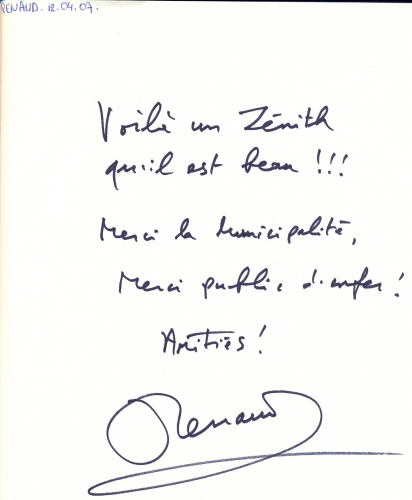 RENAUD - 12.04.07.
Voilà un Zénith
qu'il est beau !!!
Merci la Municipalité,
Merci public d'enfer !
Amitiés !
Renaud